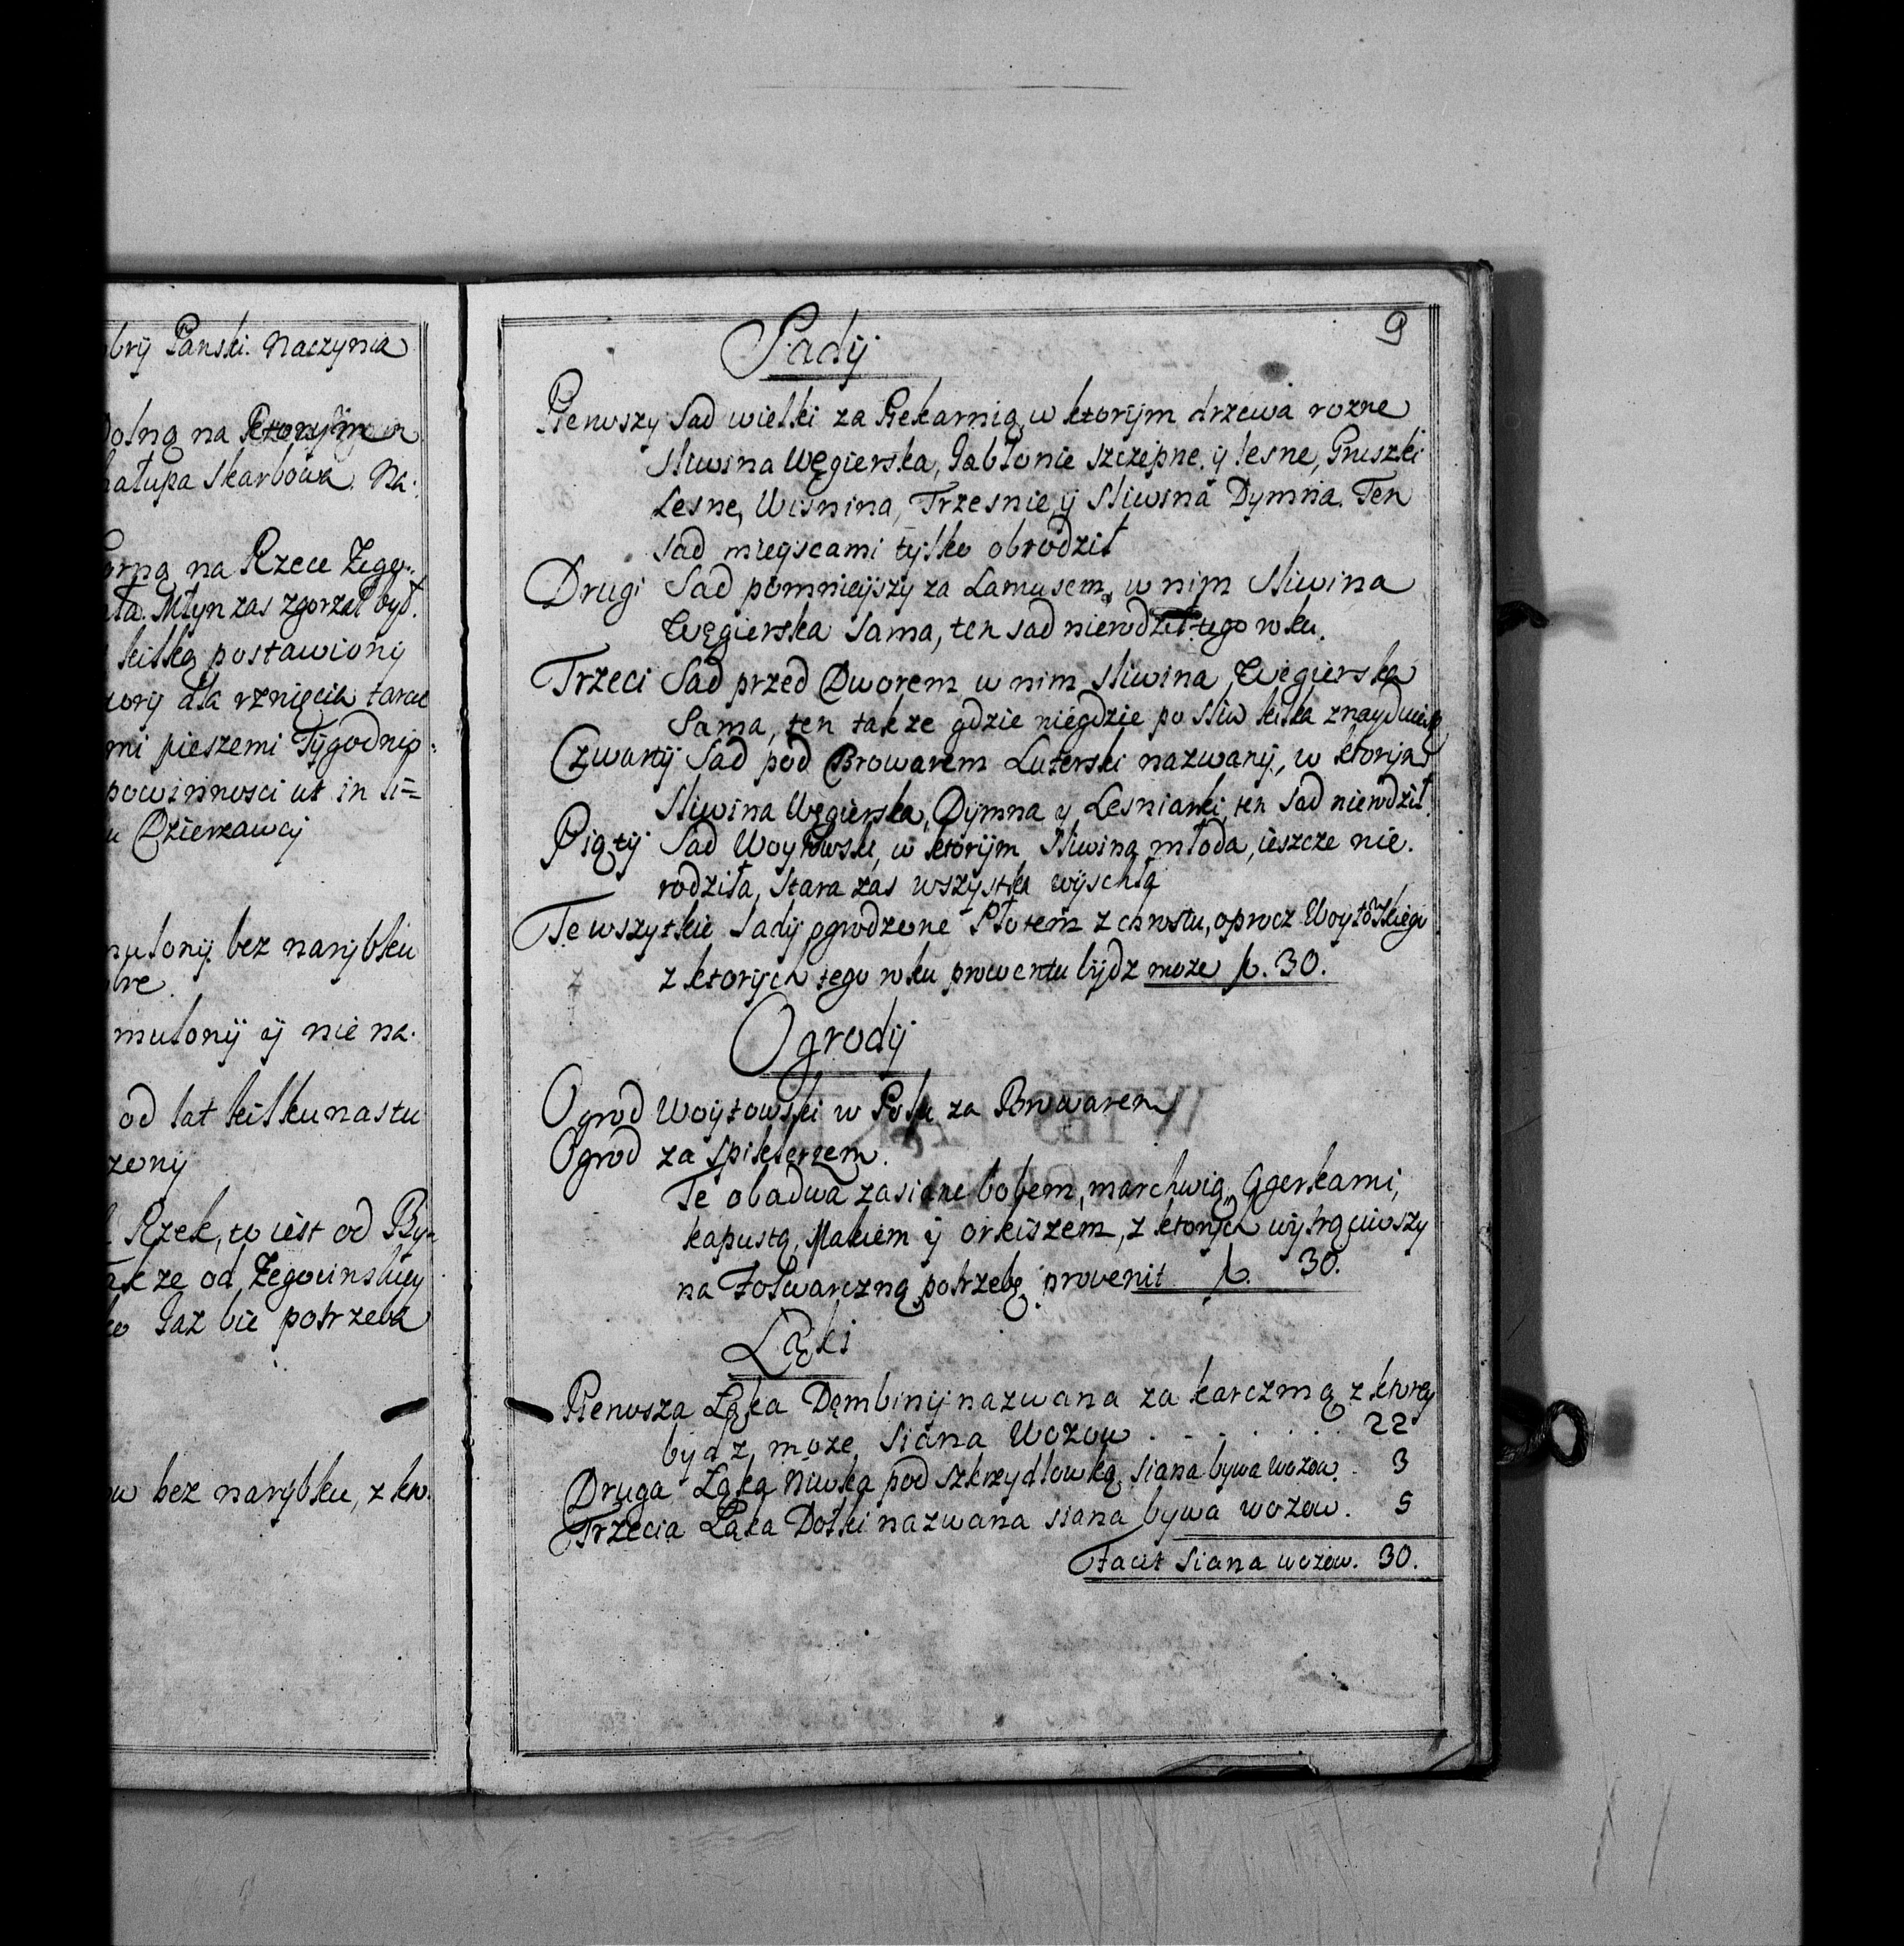 obrÿ Panski. Naczynia
Dolną na
hałupa Skarbowa. Na:
Gorną na Rzece Zego:
ała. Młyn zas zgorzał był.
kilką postawionÿ
torÿ dla rznięcia tarcic
mi pieszemi Tÿgodnio:
powinnosci ut in li=
u Dzierzawcÿ
mulonÿ bez narÿbku
bre.
mulonÿ ÿ nie na:
od lat kilkunastu
zonÿ
Rzek, to iest od By=
akze od Zegocinskiey
ko Jaz bie potrzeba
ow bez narÿbku, z kto:
9
Sadÿ
Pierwszy Sad wielki za Piekarnią w ktorÿm drzewa rozne
Sliwina Węgierska, Jabłonie szczepne ÿ lesne, Gruszki
Lesne, Wisnina, Trzesnie, ÿ Sliwina Dymna. Ten
Sad mieyscami tÿlko obrodził
Drugi Sad pomnieÿszy za Lamusem, w nim Sliwina
Węgierska Sama, ten sad nierodził tego roku.
Trzeci Sad przed Dworem w nim Sliwina Węgierska
Sama, ten takze gdzie niegdzie po Sliw kilka znayduie się
Czwartÿ Sad pod Browarem Luterski nazwanÿ, w ktorÿm
Sliwina Węgierska, Dymna ÿ Lesnianki, ten Sad nierodził.
Piątÿ Sad Woytowski, w ktorÿm Sliwina młoda, ieszcze nie
rodziła, Stara zas wszystka wÿschła
Te wszytkie Sadÿ ogrodzone Płotem z chrostu, oprocz Woytowskiego
z ktorÿch tego roku prowentu bÿdz moze f. 30.
Ogrodÿ
Ogrod Woÿtowski w Polu za Browarem
Ogrod za Spiklerzem.
Te obadwa zasiane bobem, marchwią, Ogerkami,
kapustą, Makiem ÿ orkiszem, z ktorÿch wÿtrąciwszy
na Folwarczną potrzebę provenit f. 30.
Łąki
Pierwsza Łąka Dembinÿ nazwana za karczmą z ktorey
bÿdz moze Siana Wozow . . . . . . . 22
Druga Łąka Niwka pod Szkrzydlowką, Siana bywa wozow . 3
Trzecia Łąka Dołki nazwana siana bywa wozow . 5
Facit Siana wozow. 30.